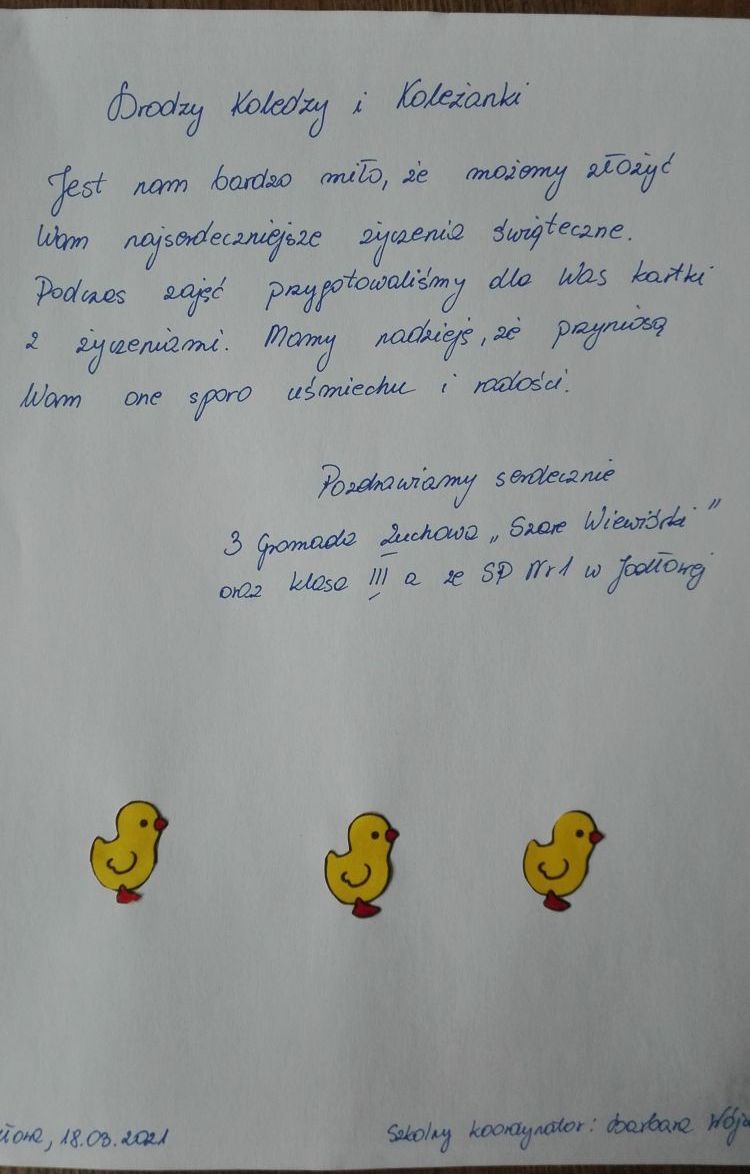 Drodzy Koledzy i Koleżanki
Jest nam bardzo miło, że możemy złożyć
Wam najserdeczniejsze życzenia świąteczne.
Podczas zajęć przygotowaliśmy dla Was kartki
z życzeniami. Mamy nadzieję, że przyniosą
Wam one sporo uśmiechu i radości.
Pozdrawiamy serdecznie
3 Gromada Zuchowa „Szare Wiewiórki"
oraz klasa III a ze SP Nr 1 w Jodłowej
18.03.2021
Szkolny koordynator: Barbara